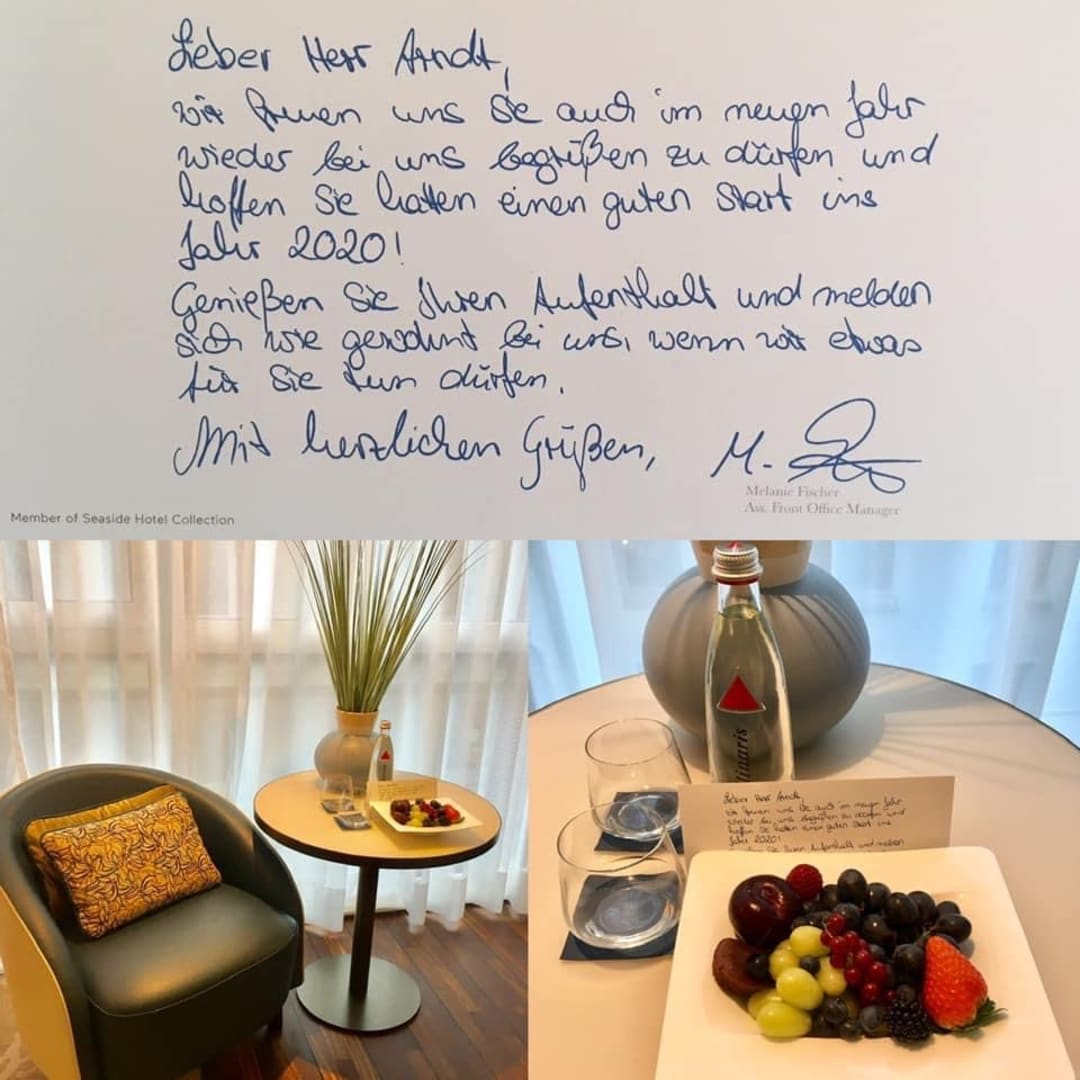 Lieber Herr Arndt,
wir freuen uns Sie auch im neuen Jahr
wieder bei uns begrüßen zu dürfen und
hoffen Sie hatten einen guten Start ins
Jahr 2020!
Genießen Sie Ihren Aufenthalt und melden
sich wie gewohnt bei uns, wenn wir etwas
für Sie tun dürfen.
Mit herzlichen Grüßen, M.
Melanie Fischer
Ass. Front Office Manager
Member of Seaside Hotel Collection
linaris
Lieber Herr Arndt,
wir freuen uns Sie auch im neuen Jahr
wieder bei uns begrüßen zu dürfen und
hoffen Sie hatten einen guten Start ins
Jahr 2020!
Sie Ihren Aufenthalt und melden